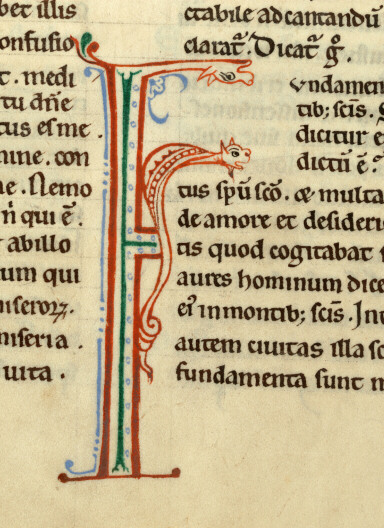 bet illis
onfusio
t. medi
tu dñe
tus es me.
mine. con
ne. Nemo
n̄ qui ē.
t abillo
um qui
miseroꝝ.
miseria.
uita.
ctabile ad cantandū
claraꞇ̄. Dicaꞇ̄ g̊.
F
undamen
tib; scīs.
dicitur
dictū ē.
tus spū scō. & multa
de amore et desideri
tis quod cogitabat
aures hominum dice
eī in montib; scīs. In
autem ciuitas illa
fundamenta sunt